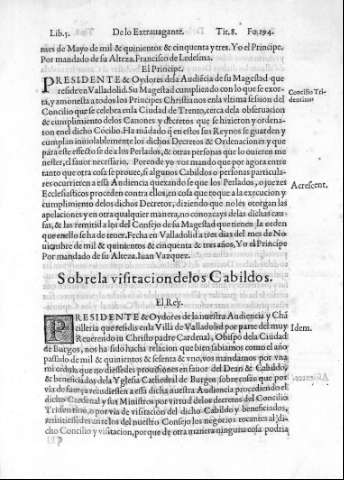 Lib.5. De lo Extrauagante. Tit.8. Fo.194.
nies de Mayo de mil & quinientos & cinquenta y tres. Yo el Principe.
Por mandado de su Alteza. Francisco de Ledesma.
El Principe.
PRESIDENTE & Oydores dela Audiēcia de su Magestad que
reside en Valladolid. Su Magestad cumpliendo con lo que se exor-
ta, y amonesta a todos los Principes Christianos enla vltima session del
Concilio que se celebra enla Ciudad de Trento, cerca dela obseruacion
& cumplimiento delos Canones y decretos que se hizieron y ordena-
ton enel dicho Cōcilio. Ha mādado q̄ en estos sus Reynos se guarden y
cumplan inuiolablemente los dichos Decretos & Ordenaciones y que
para este effecto se de a los Perlados, & otras personas que lo ouieren me
nester, el fauor necessario. Porende yo vos mando que por agora entre
tanto que otra cosa se prouee, si algunos Cabildos o personas particula-
res ocurrieren a essa Audiencia quexando se que los Perlados, o juezes
Ecclesiasticos proceden contra ellos, en cosa que toque a la execucion y
cumplimiento delos dichos Decretos, diziendo que no les otorgan las
apelaciones y en otra qualquier manera, no conozcays de las dichas cau-
sas, & las remitid a los del Consejo de su Magestad que tienen la orden
que enello se ha de tener. Fecha en Valladolid a tres dias del mes de No
uiembre de mil & quinientos & cinquenta & tres años, Yo el Principe
Por mandado de su Alteza. Iuan Vazquez.
Concilio Tri-
dentino
Acrescent.
Sobre la visitacion de los Cabildos.
El Rey.
PRESIDENTE & Oydores de la nuestra Audiencia y Chā
cilleria que residis en la Villa de Valladolid por parte del muy
Reuerendo in Christo padre Cardenal, Obispo dela Ciudad
de Burgos, nos ha sido hecha relacion que bien sabiamos como el año
passado de mil & quinientos & sesenta & vno, vos mandamos por vna
mi cedula que no diessedes prouisiones en fauor del Dean & Cabildo,
& beneficiados dela Yglesia Cathedral de Burgos sobre caso que por
via de fuerça acudiessen a essa dicha nuestra Audiencia procediendo el
dicho Cardenal y sus Ministros por virtud delos decretos del Concilio
Tridentino, o por via de visitacion del dicho Cabildo y beneficiados,
& remitiessedes a los del nuestro Consejo los negocios tocantes al di-
cho Concilio y visitacion, porque de otra manera ninguna cosa podria
Idem.